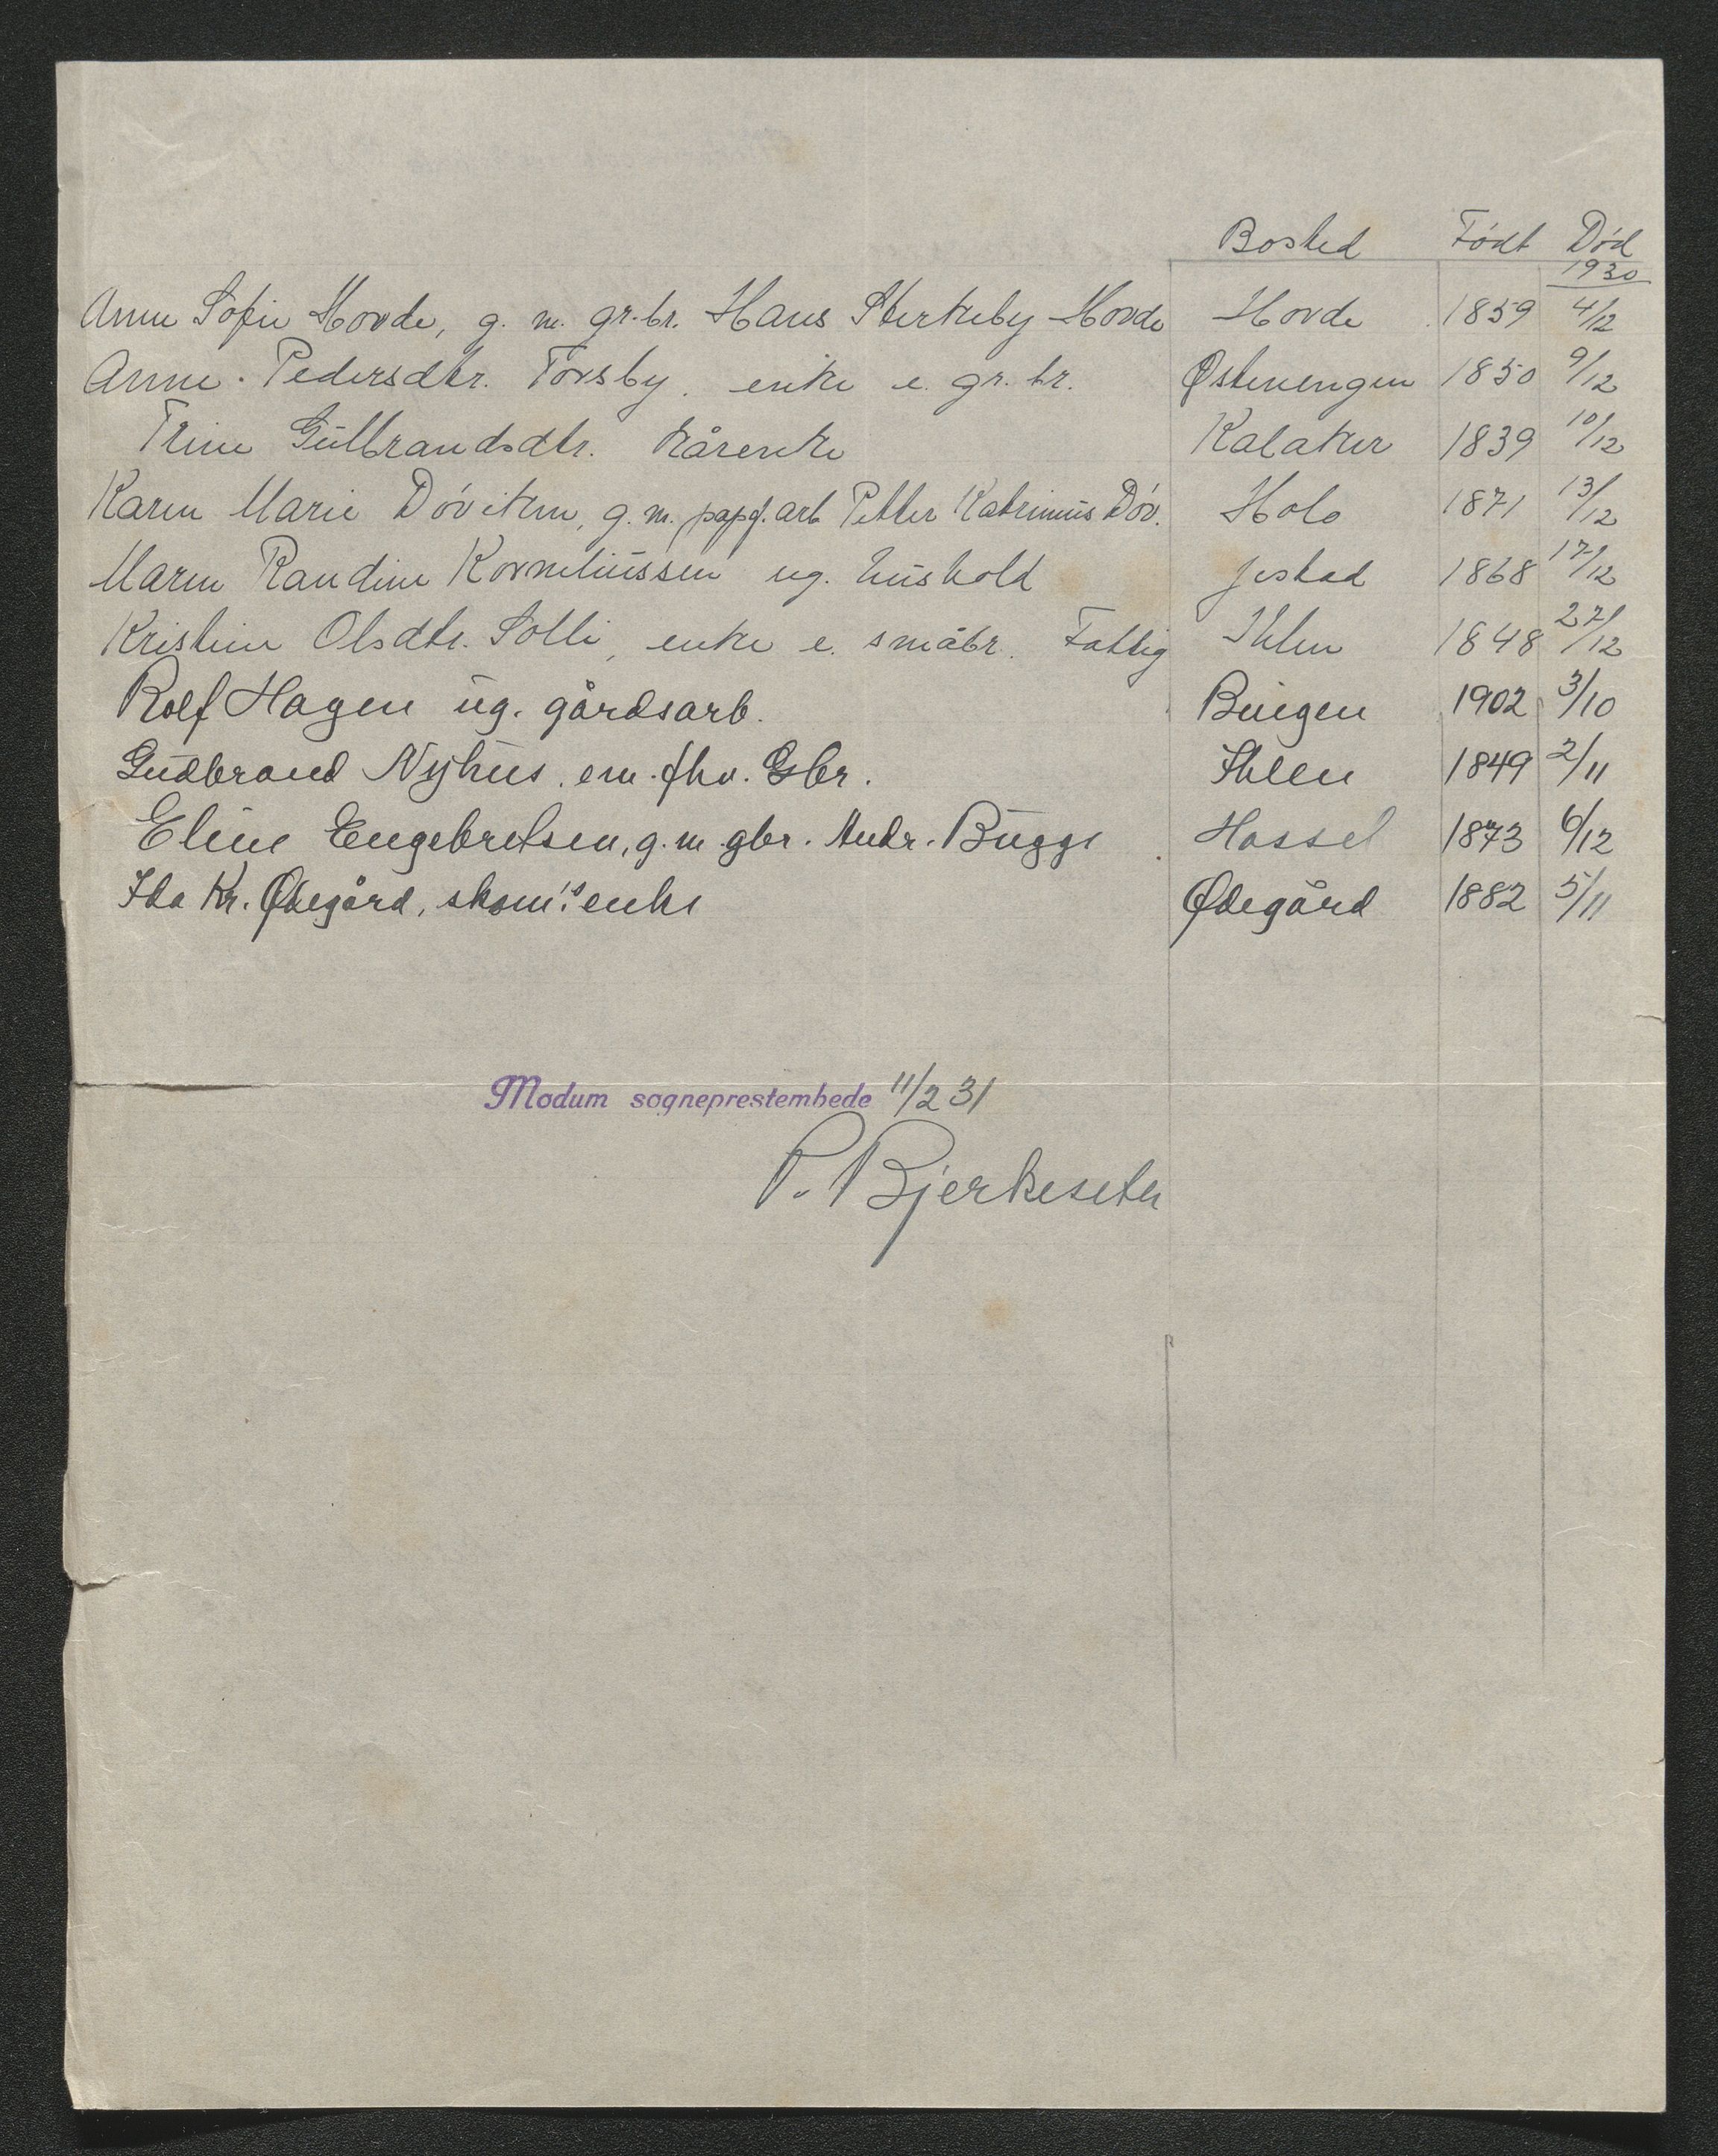 Bosted Født Død
1930
Anne Sofie Hovde, g. m. gr.br. Hans Sterkeby Hovde Hovde 1859 4/12
Anne Pedersdtr. Forsby. enke e. gr. br. Østenengen 1850 9/12
Trine Gulbrandsdtr. kårenke Kalaker 1839 10/12
Karen Marie Døviken, g. m. papf. arb Petter Katrinius Døv. Holo 1871 13/12
Maren Randine Korneliussen ug. hushold Jestad 1868 17/12
Kristine Olsdtr. Solli, enke e. småbr. Fattig Ihlen 1848 27/12
Rolf Hagen ug. gårdsarb. Bingen 1902 3/10
Gudbrand Nyhus. em. fhv. Gbr. Ihlen 1849 2/11
Eline Engebretsen, g. m. gbr. Andr. Bugge Hassel 1873 6/12
Ida Kr. Ødegård, skom's enke Ødegård 1882 5/11
Modum sogneprestembede 11/2 31
P. Bjerkeseth